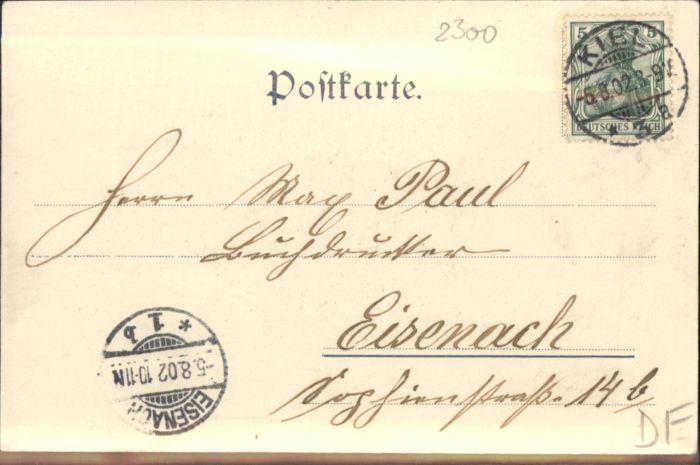 2300
5 5
KIEL
5.8.02.8-9V.
* 3 a
DEUTSCHES REICH
Postkarte.
Herrn Max Paul
Buchdrucker
Eisenach
Sophienstraße 14 b
* 1 b
5.8.02 10-11N
EISENACH
DF